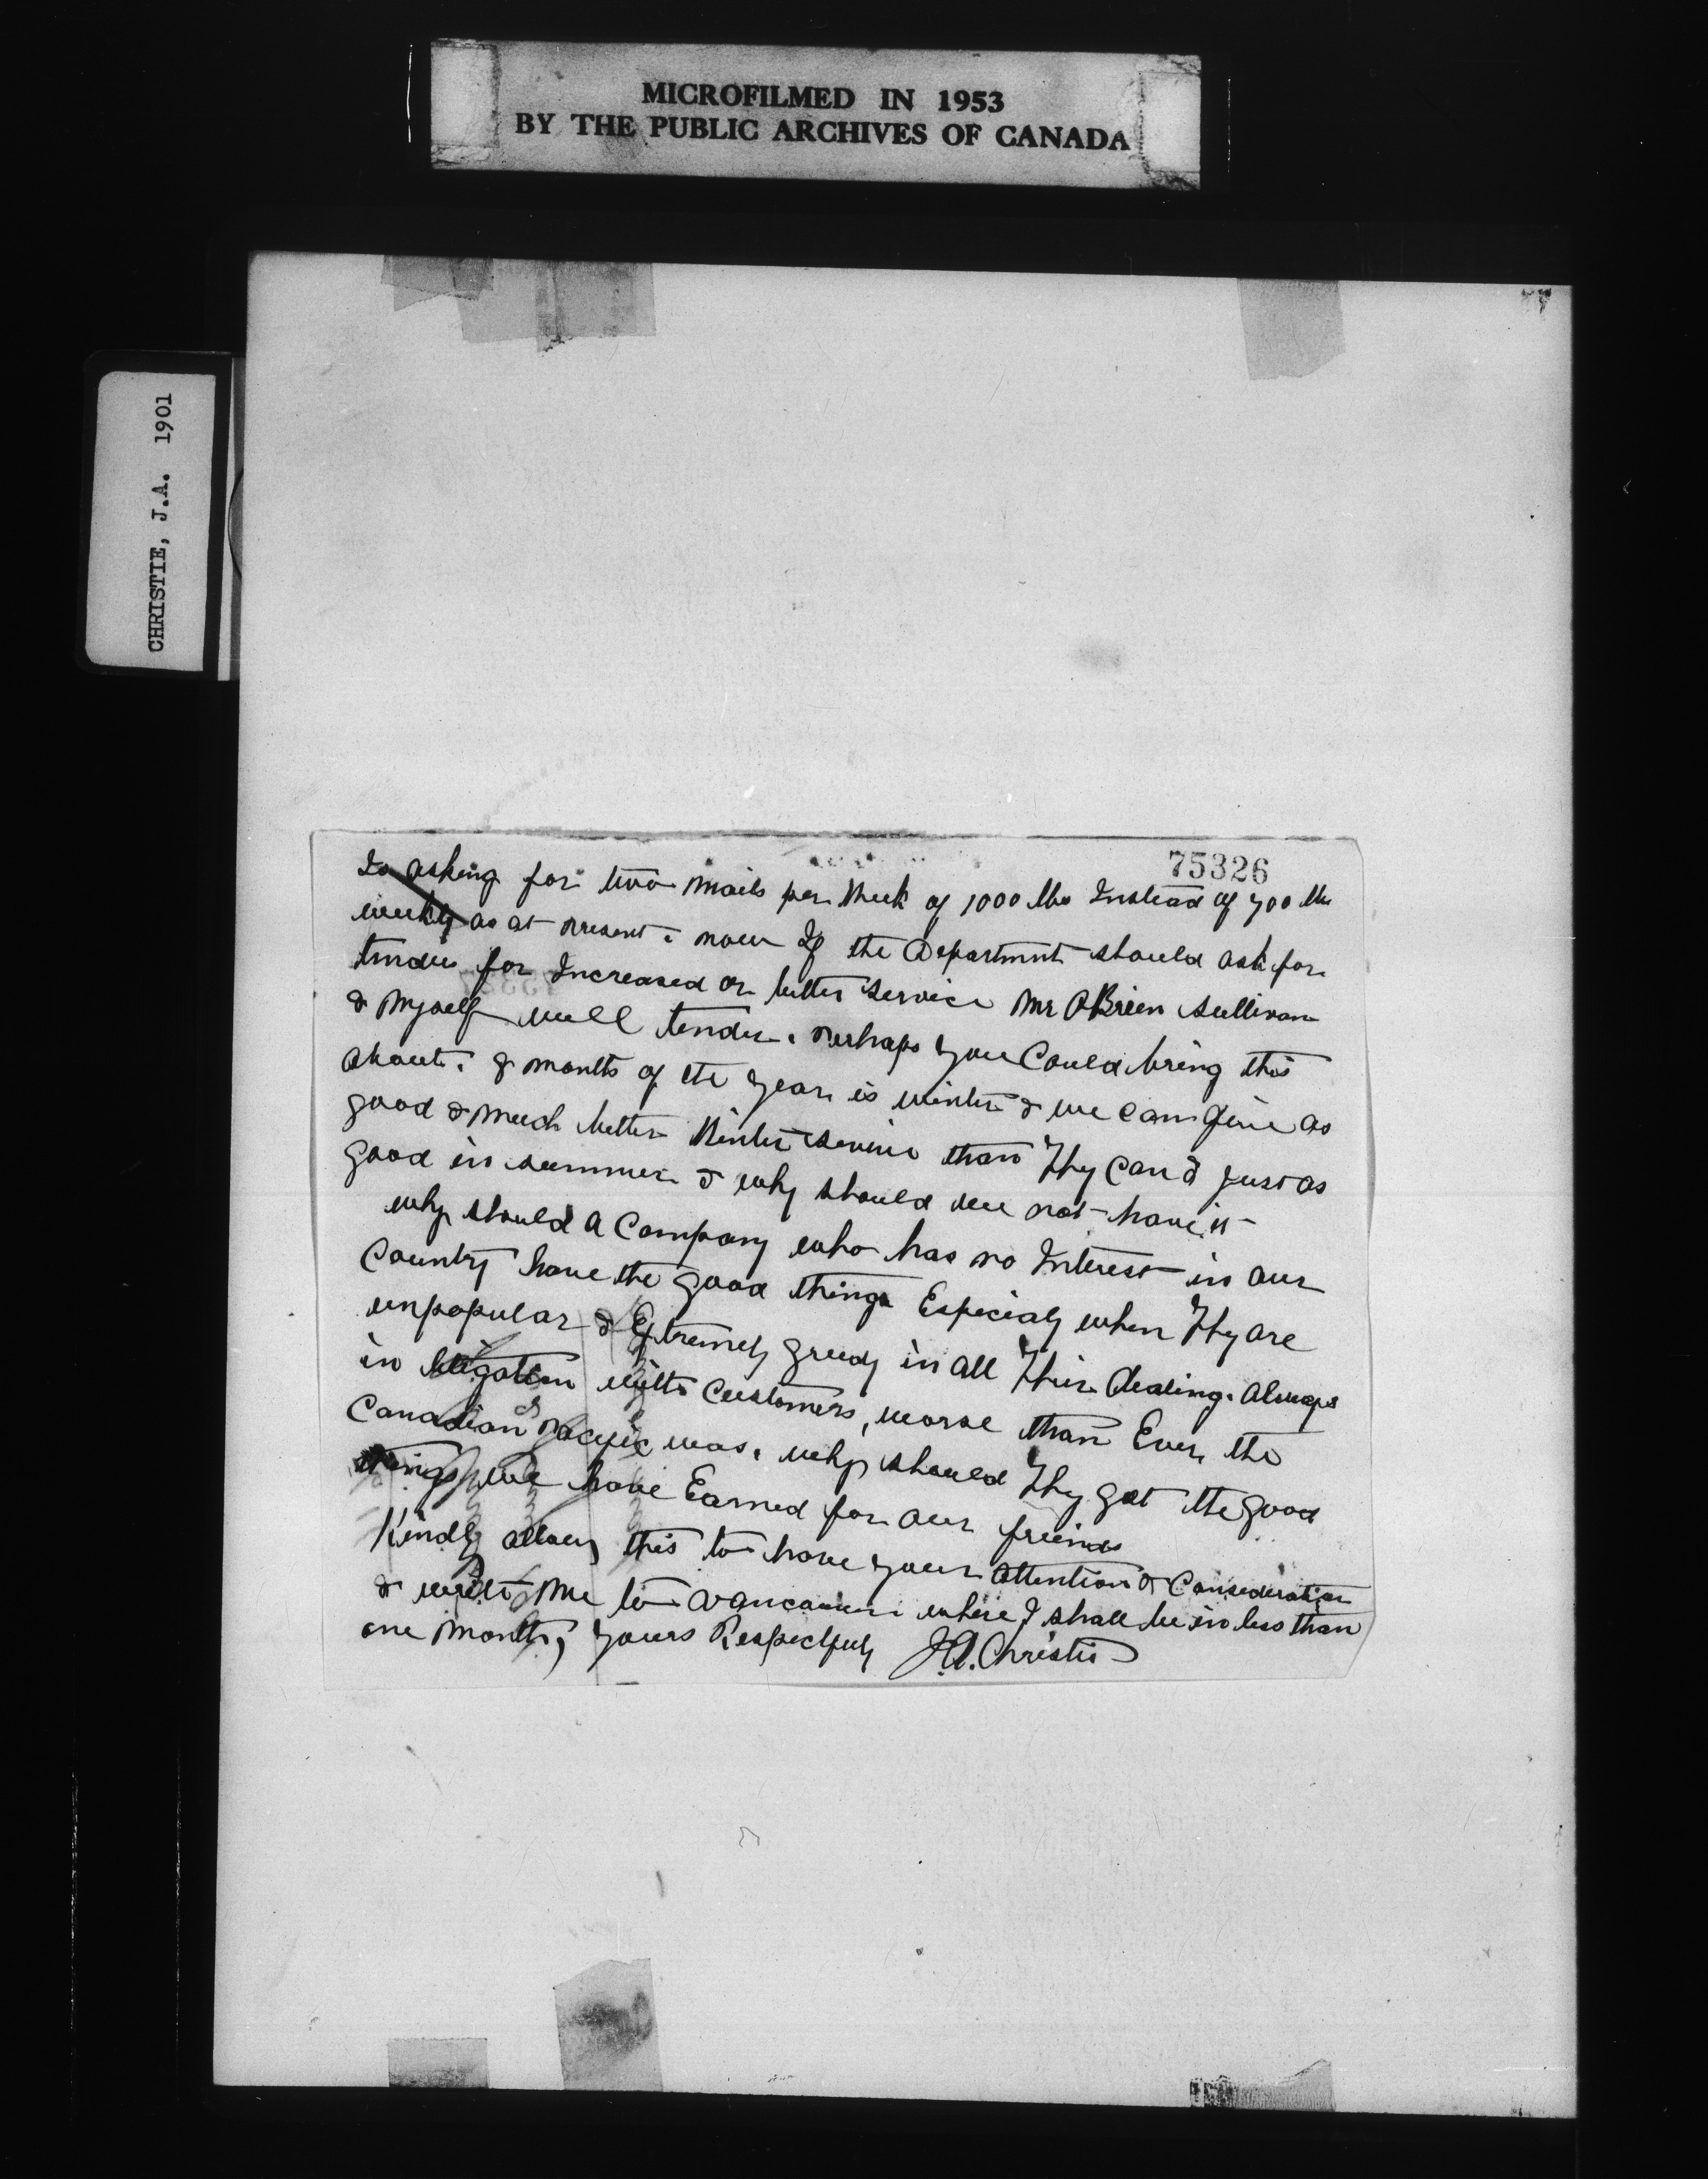 MICROFILMED IN 1953
BY THE PUBLIC ARCHIVES OF CANADA
CHRISTIE, J.A. 1901
75326
Is asking for two mails per Week of 1000 lbs Instead of 700 lbs
weekly as at present. now If the Department should ask for
tenders for Increased or better service Mr OBrien Sullivan
& Myself will tender. Perhaps you Could bring this
about. 8 months of the year is winter & we can give as
good & much better Winter service than They can & just as
good in summer & why should we not have it
why should a Company who has no Interest in our
Country have the good things Especialy when They are
unpopular & Extremely greedy in all Their dealing. always
in litigation with Customers, worse than Ever the
Canadian Pacific was. why should They get the good
things we have Earned for our friends
Kindly allow this to have your attention & Consideration
& write me to Vancouver where I shall be in less than
one month, yours Respectfuly J.A. Christie